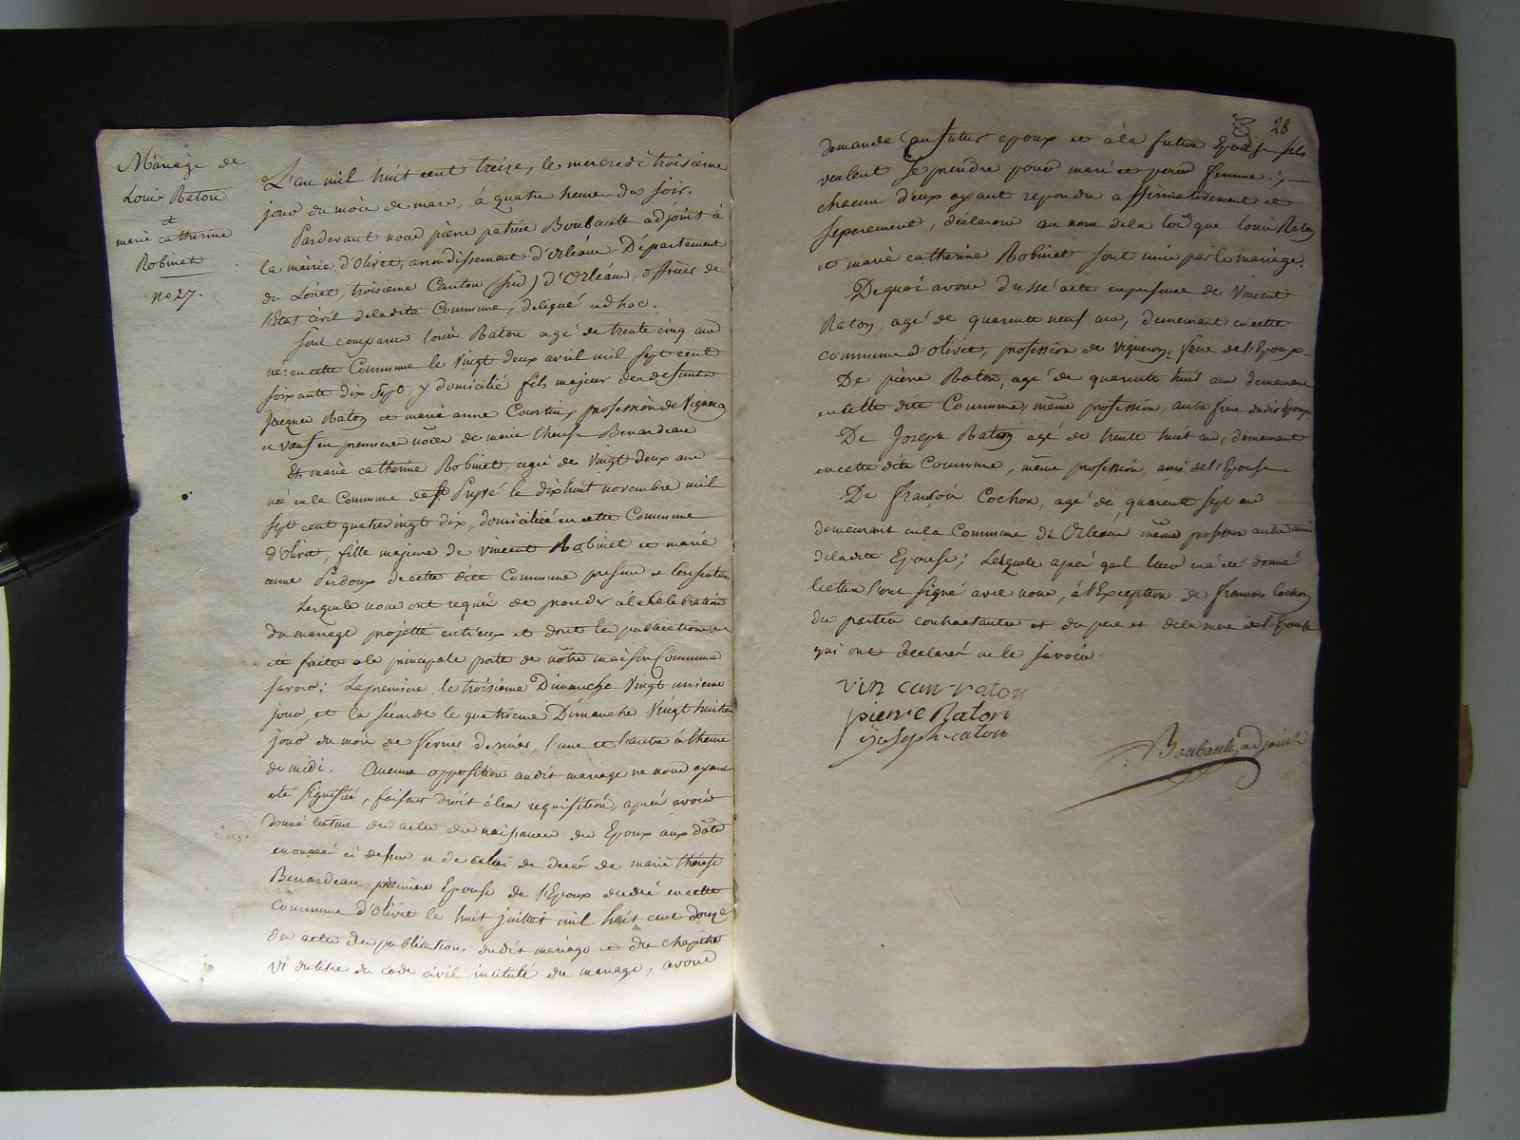 Mariage de
Louis Raton
et
marie catherine
Robinet
no 27.
L'an mil huit cent treize, le mercredi troisieme
jour du mois de mars, à quatre heures du soir.
Pardevant nous pierre patrice Boubault adjoint à
la mairie d'Olivet, arrondissement d'orléans Département
du Loiret, troisieme Canton (sud) d'Orléans, officier de
l'Etat civil deladite Commune, delegué ad hoc.
Sont comparus louis Raton agé de trente cinq ans
né en cette Commune le vingt deux avril mil sept cent
soixante dix sept y domicilié fils majeur des defunts
Jacques Raton et marie anne Courtin, profession de Vigneron
et veuf en premiere noces de marie therese Benardeau
Et marie catherine Robinet, agée de vingt deux ans
née en la Commune de St Pryvé le dix huit novembre mil
sept cent quatrevingt dix, domiciliée en cette Commune
d'Olivet, fille majeure de vincent Robinet et marie
anne Perdoux de cette dite Commune presens et consentans
Lesquels nous ont requis de proceder à la celebration
du mariage projetté entr'eux et dont les publications ont
été faites a la principale porte de notre maison Commune
savoir; la premiere le troisieme Dimanche vingt unieme
jour et la seconde le quatrieme Dimanche vingt huitieme
jour du mois de fevrier dernier, l'une et l'autre à l'heure
de midi. Aucune opposition audit mariage ne nous ayant
été signifiée, faisant droit à leur requisition, après avoir
donné lecture des actes de naissances des Epoux aux dates
enoncés ci dessus et de celui de decès de marie therese
Benardeau premiere Epouse de l'Epoux decedée en cette
Commune d'Olivet le huit juillet mil huit cent douze
des actes de publications dudit mariage et du chapitre
VI du titre du code civil intitulé du mariage, avons
28
demandé au futur epoux et à la future Epouse s'ils
veulent se prendre pour mari et pour femme:
chacun d'eux ayant repondu affirmativement et
separement, déclarons au nom de la loi que louis Raton
et marie catherine Robinet sont unis par le mariage.
De quoi avons dressé acte en presence de Vincent
Raton, agé de quarante neuf ans, demeurant en cette
commune d'olivet, profession de vigneron, frere de l'Epoux
De pierre Raton, agé de quarante huit ans demeurant
en cette dite Commune, même profession, autre frere dudit Epoux
De Joseph Raton agé de trente huit ans, demeurant
en cette dite Commune, même profession, ami de l'Epouse
De françois Cochon, agé de quarante sept ans
demeurant en la Commune de Orléans même profession autre ami
de ladite Epouse; Lesquels après qu'il leur en a été donné
lecture l'ont signé avec nous, à l'Exception de francois Cochon
des parties contractantes et du pere et de la mere de l'Epouse
qui ont declaré ne le savoir.
vin cent raton
pierre Raton
joseph raton
Boubault, adjoint